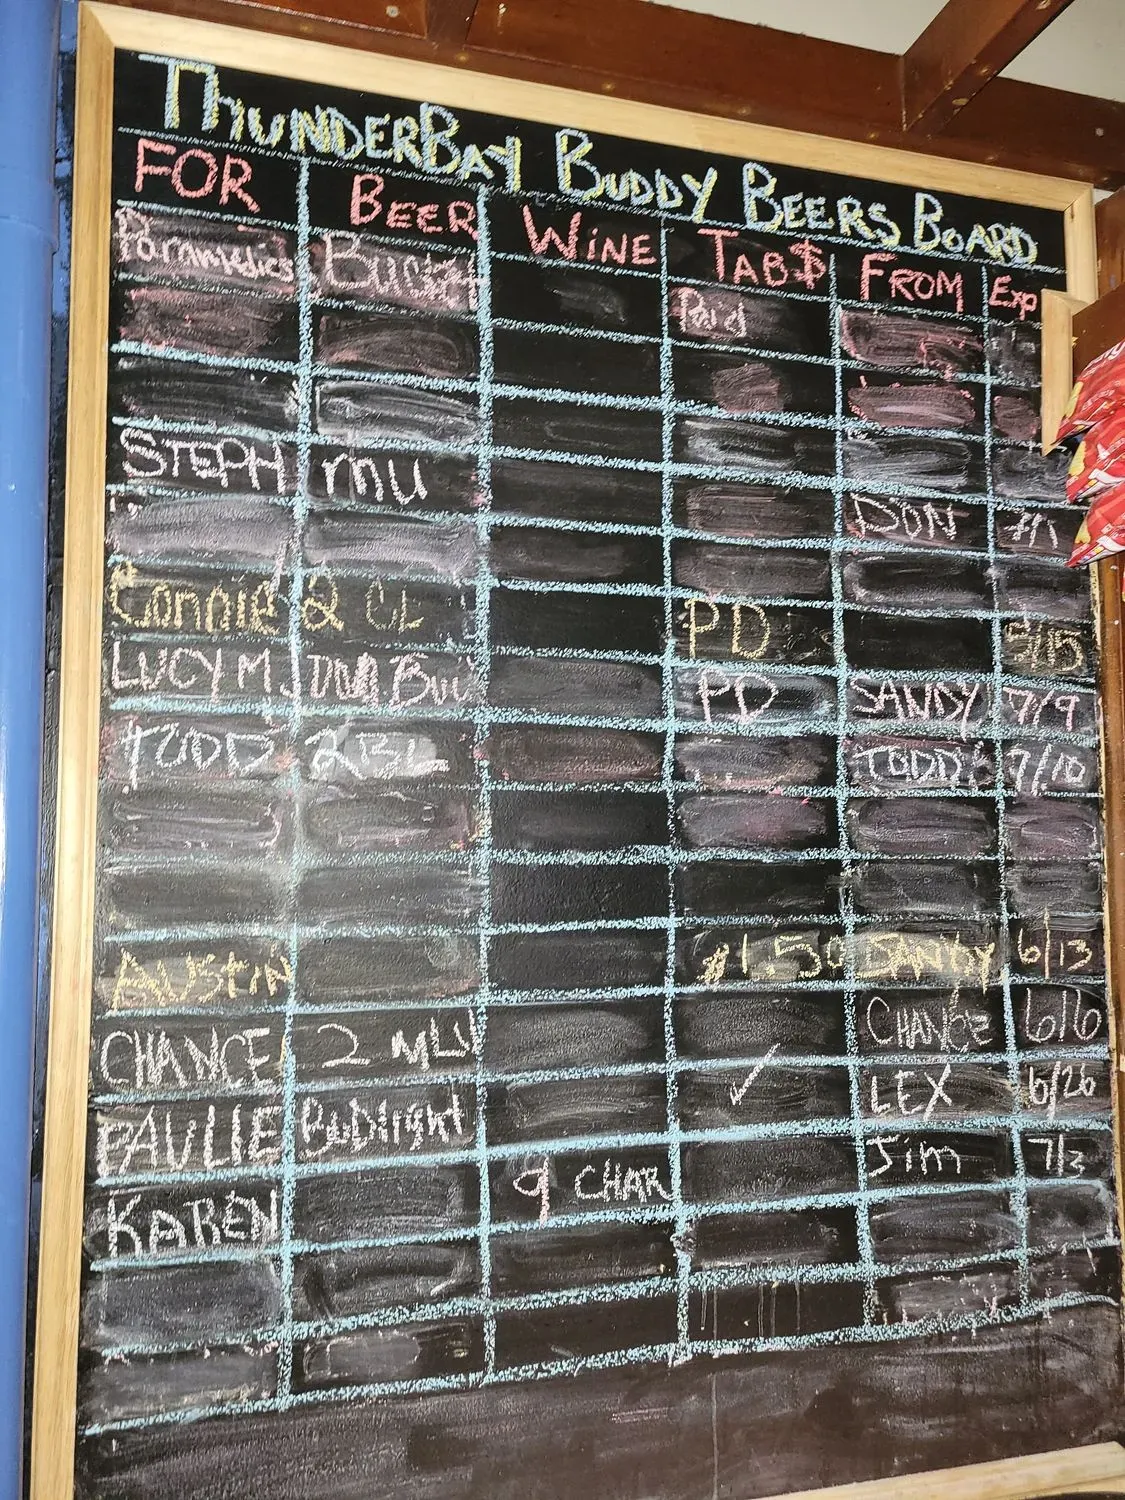 THUNDERBAY BUDDY BEERS BOARD
FOR BEER WINE TAB$ FROM EXP
Paramedics Bucket Paid
STEPH mu DON
Connie 2 CL PD 5/15
LUCY M. PD SANDY 7/9
TODD 2 BL TODD 7/10
AUSTIN $1.50 SANDY 6/13
CHANCE 2 CHANCE 6/6
PAULIE BUDlight ✓ LEX 6/26
KAREN CHAR Jim 7/3